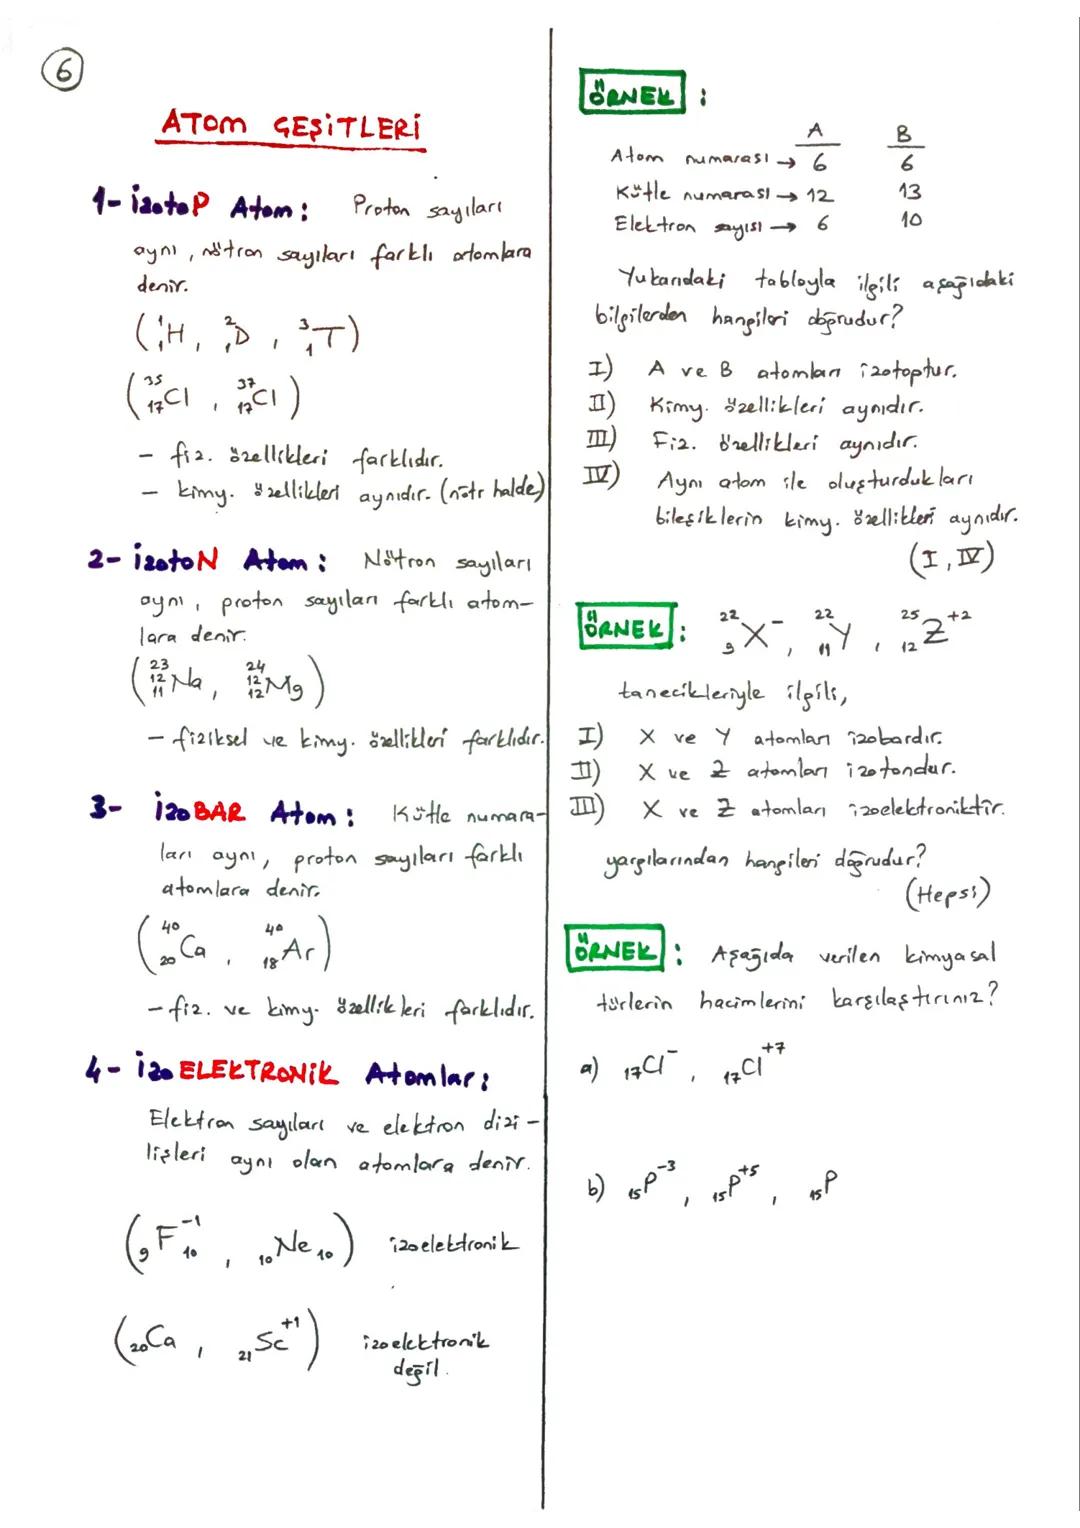 6
ATOM ÇEŞİTLERİ
1- İzotoP Atom: Proton sayıları
aynı, nötron sayıları farklı atomlara
denir.
(¹₁H, ²₁D, ³₁T)
(³⁵₁₇Cl, ³⁷₁₇Cl)
- fiz. özellikleri farklıdır.
- kimy. özellikleri aynıdır. (nötr halde)
2- İzotoN Atom: Nötron sayıları
aynı, proton sayıları farklı atom-
lara denir.
(²³₁₂₁₁Na, ²⁴₁₂₁₂Mg)
- fiziksel ve kimy. özellikleri farklıdır.
3- İzoBAR Atom: Kütle numara-
ları aynı, proton sayıları farklı
atomlara denir.
(⁴⁰₂₀Ca, ⁴⁰₁₈Ar)
- fiz. ve kimy. özellikleri farklıdır.
4- İzoELEKTRONİK Atomlar:
Elektron sayıları ve elektron dizi-
lişleri aynı olan atomlara denir.
(₉F⁻¹₁₀, ₁₀Ne₁₀) izoelektronik
(₂₀Ca, ₂₁Sc⁺¹) izoelektronik
değil.
ÖRNEK:
A B
Atom numarası → 6 6
Kütle numarası → 12 13
Elektron sayısı → 6 10
Yukarıdaki tabloyla ilgili aşağıdaki
bilgilerden hangileri doğrudur?
I) A ve B atomları izotoptur.
II) Kimy. özellikleri aynıdır.
III) Fiz. özellikleri aynıdır.
IV) Aynı atom ile oluşturdukları
bileşiklerin kimy. özellikleri aynıdır.
(I, IV)
ÖRNEK: ²²₉X⁻, ²²₁₁Y, ²⁵₁₂Z⁺²
tanecikleriyle ilgili,
I) X ve Y atomları izobardır.
II) X ve Z atomları izotondur.
III) X ve Z atomları izoelektroniktir.
yargılarından hangileri doğrudur?
(Hepsi)
ÖRNEK: Aşağıda verilen kimyasal
türlerin hacimlerini karşılaştırınız?
a) ₁₇Cl⁻, ₁₇Cl⁺⁷
b) ₁₅P⁻³, ₁₅P⁺⁵, ₁₅P